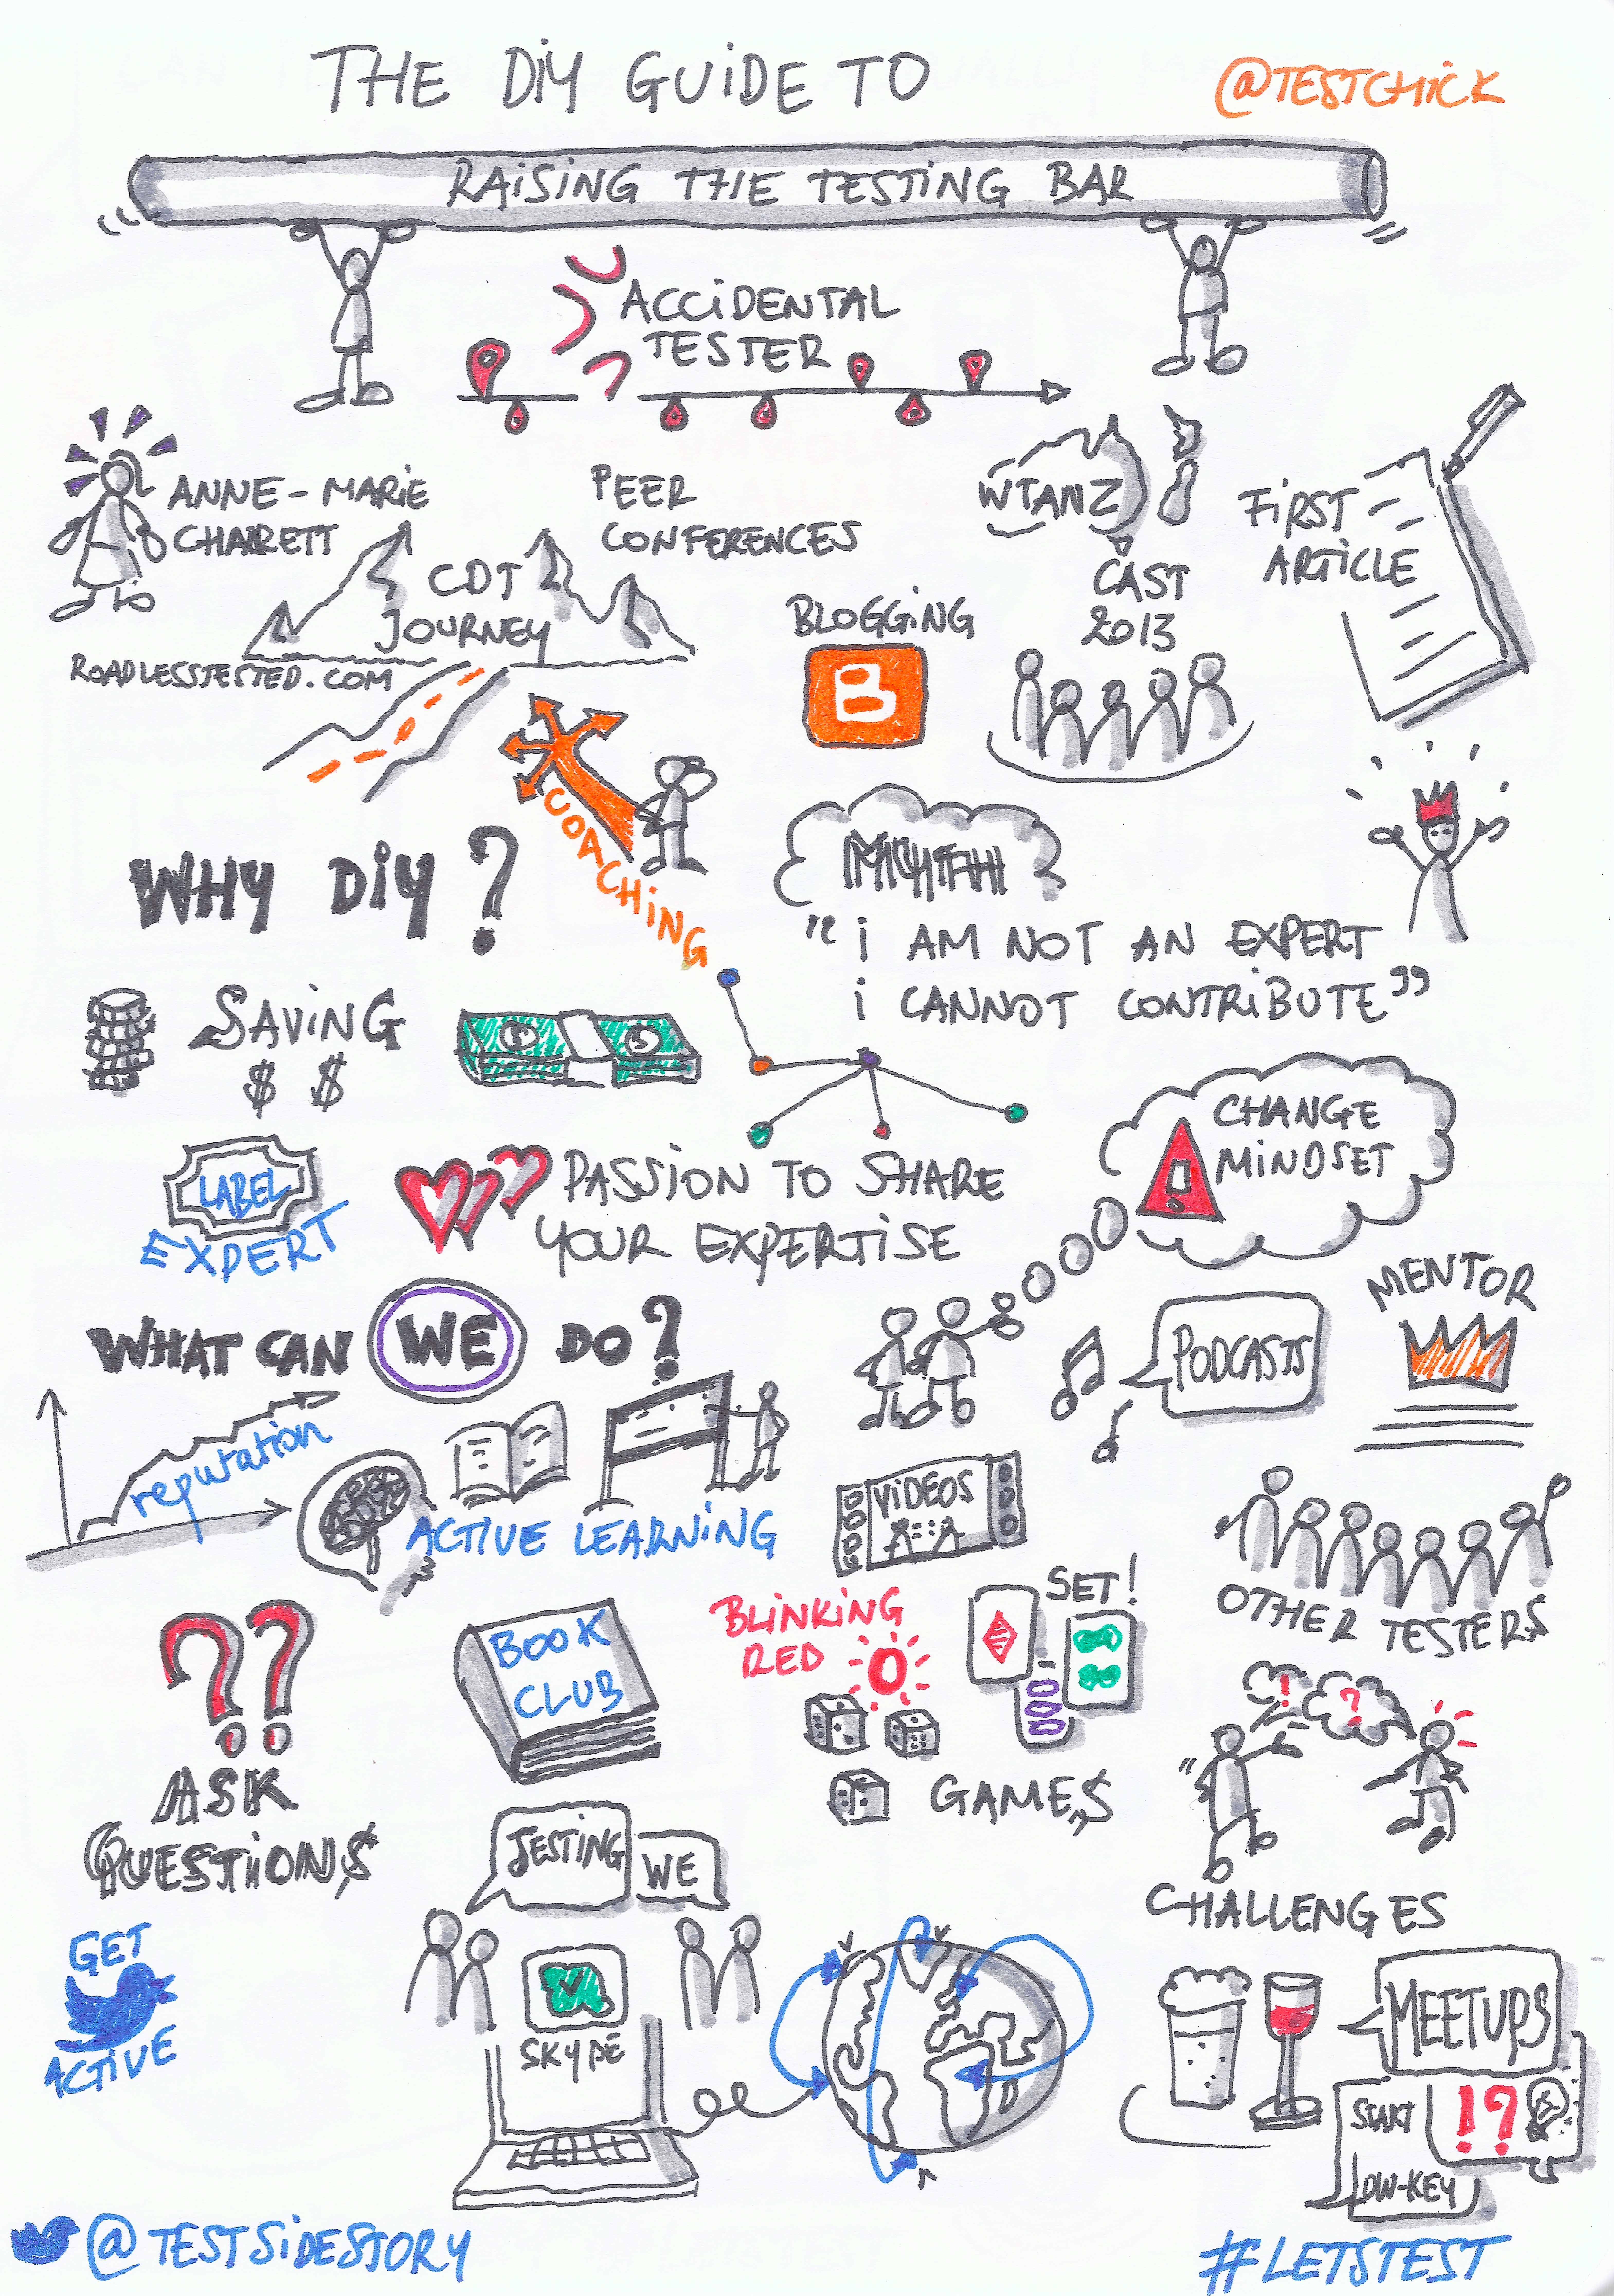 THE DiY GUiDE TO
@TESTCHiCK
RAiSiNG THE TESTiNG BAR
ACCiDENTAL
TESTER
ANNE-MARiE
CHARRETT
PEER
CONFERENCES
WTANZ
CAST
2013
FiRST
ARTiCLE
CDT
JOURNEY
ROADLESSTESTED.COM
BLOGGiNG
B
COACHiNG
WHY DiY?
"i AM NOT AN EXPERT
i CANNOT CONTRiBUTE"
SAViNG
$ $
LABEL
EXPERT
PASSiON TO SHARE
YOUR EXPERTiSE
CHANGE
MiNDSET
!
WHAT CAN WE DO?
PODCASTS
MENTOR
reputation
ACTiVE LEARNiNG
ViDEOS
OTHER TESTERS
??
ASK
QUESTiONS
BOOK
CLUB
BLiNKiNG
RED
SET!
GAMES
! ?
CHALLENGES
TESTiNG
WE
SKYPE
GET
ACTiVE
MEETUPS
START
LOW-KEY
!?
@TESTSiDESTORY
#LETSTEST